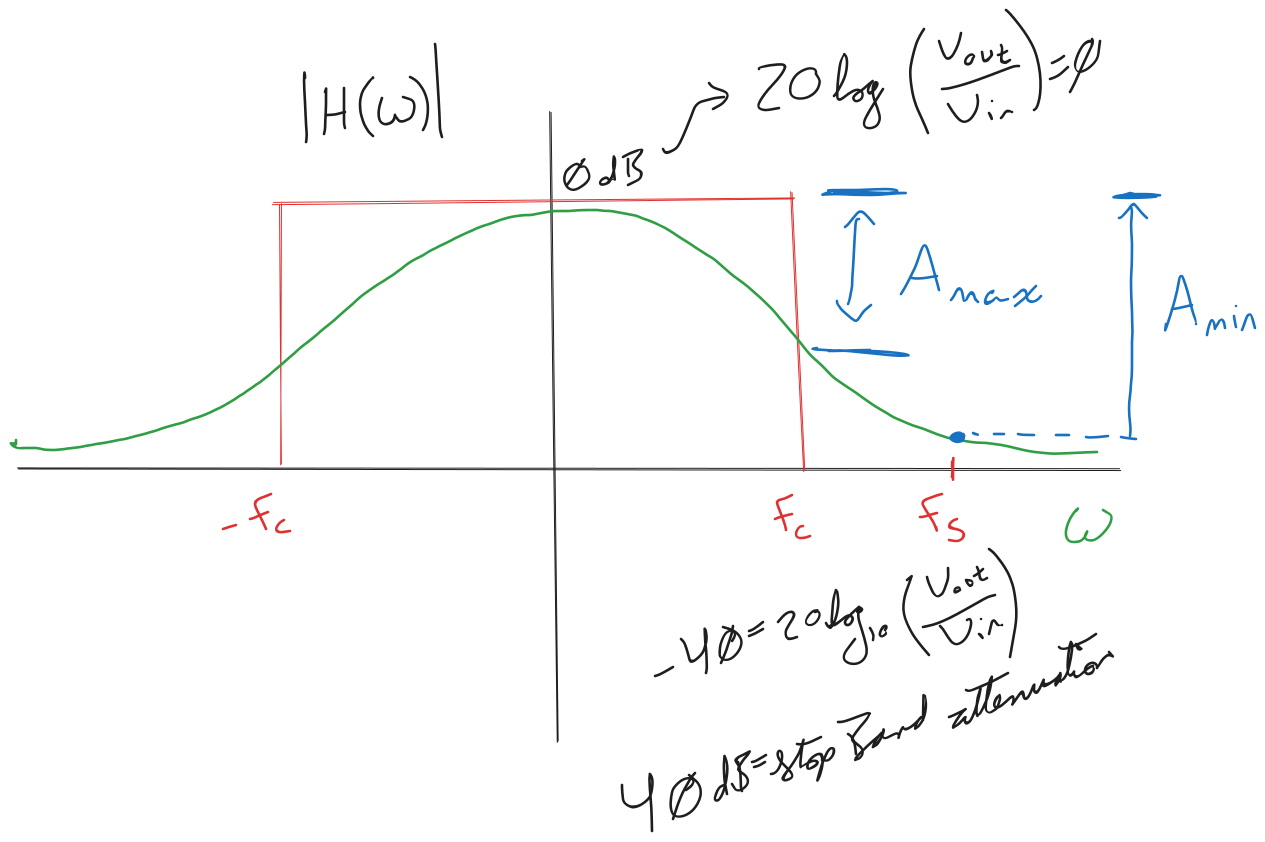 |H(ω)|
0 dB → 20 log (Vout/Vin) = 0
Amax
Amin
-fc
fc
fs
ω
-40 = 20 log10 (Vout/Vin)
40 dB = stop Band attenuation